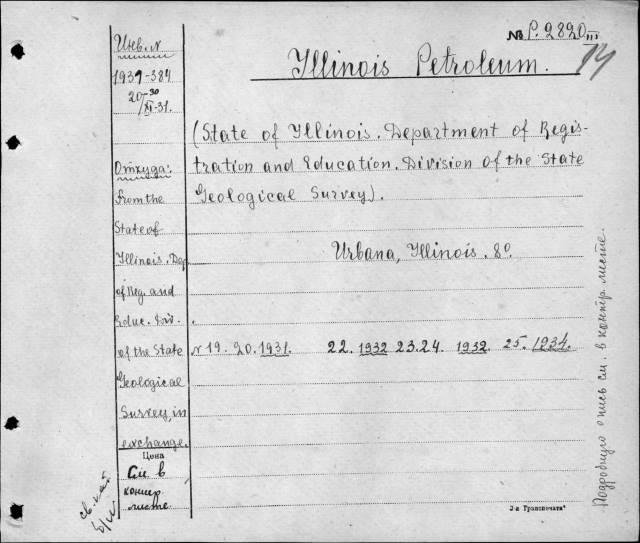 № P. 2820 III
14
Illinois Petroleum.
Инв. №
1931-384
20-30
XI-31.
(State of Illinois. Department of Regis-
tration and Education. Division of the State
Geological Survey).
Urbana, Illinois. 8º.
№ 19. 20. 1931. 22. 1932 23.24. 1932. 25. 1934.
Откуда:
From the
State of
Illinois. Dep.
of Reg. and
Educ. Div.
of the State
Geological
Survey, in
exchange.
Цена
См. в
контр.
листе
Подробную опись см. в контр. листе.
3-я Транспечать